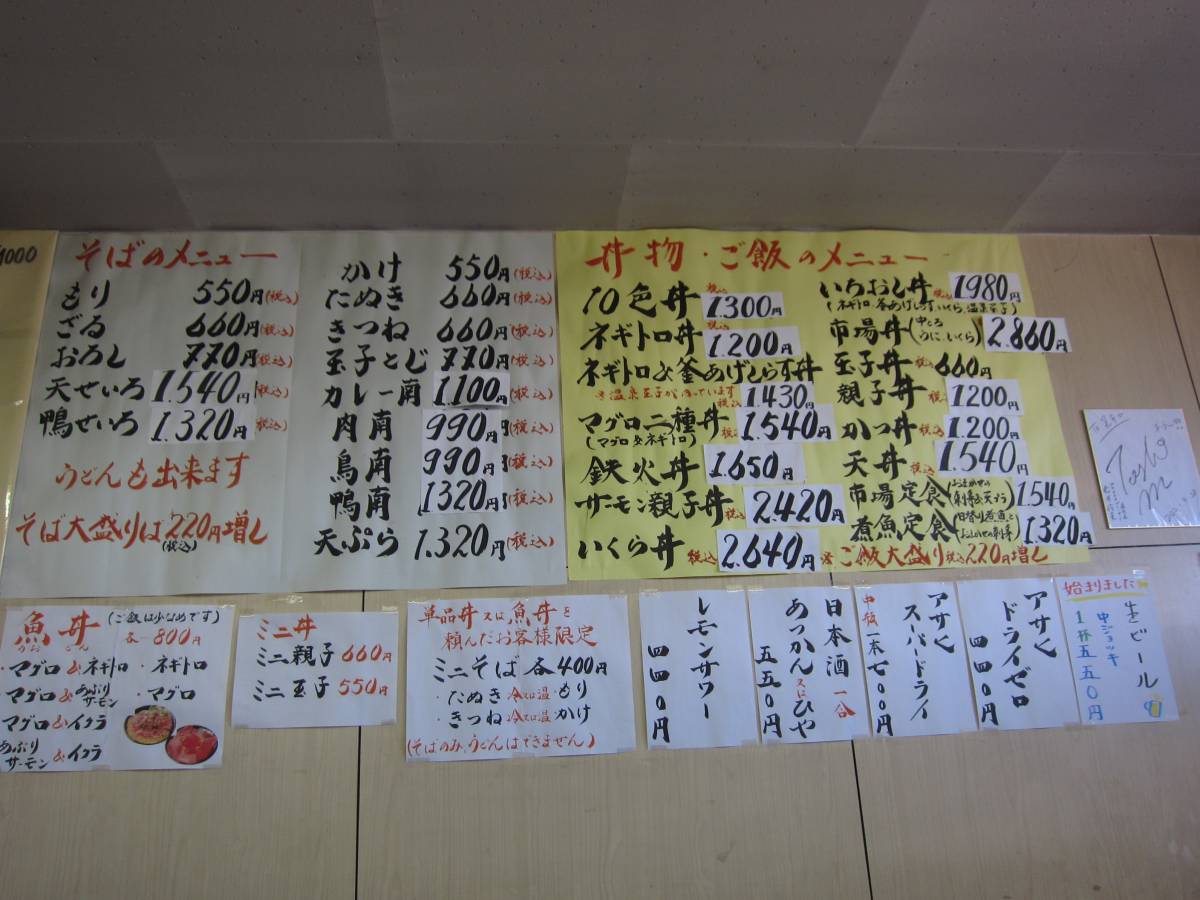 1000
そばのメニュー
もり 550円(税込)
ざる 660円(税込)
おろし 770円(税込)
天せいろ 1.540円(税込)
鴨せいろ 1.320円(税込)
うどんも出来ます
そば大盛りは220円増し
(税込)
かけ 550円(税込)
たぬき 660円(税込)
きつね 660円(税込)
玉子とじ 770円(税込)
カレー南 1.100円(税込)
肉南 990円(税込)
鳥南 990円(税込)
鴨南 1320円(税込)
天ぷら 1.320円(税込)
丼物・ご飯のメニュー
10色丼 税込 1.300円
ネギトロ丼 税込 1.200円
ネギトロ&釜あげしらす丼
※温泉玉子が入っています 税込 1.430円
マグロ二種丼 税込 1.540円
(マグロ&ネギトロ)
鉄火丼 1.650円
サーモン親子丼 税込 2.420円
いくら丼 税込 2.640円
いちおし丼 税込 1.980円
(ネギトロ、釜あげしらす、いくら、温泉玉子)
市場丼(中とろ うに、いくら) 2.860円
玉子丼 税込 660円
親子丼 税込 1200円
かつ丼 税込 1.200円
天丼 税込 1.540円
市場定食(おまかせの刺身&天プラ) 1.540円
煮魚定食(日替り煮魚とおまかせの刺身) 1.320円
※ご飯大盛り税込220円増し
魚丼 (ご飯は少なめです)
うおどん 各800円
・マグロ&ネギトロ ・ネギトロ
・マグロ&あぶりサーモン ・マグロ
マグロ&イクラ
あぶりサーモン&イクラ
ミニ丼
ミニ親子 660円
ミニ玉子 550円
単品丼又は魚丼を
頼んだお客様限定
ミニそば各400円
・たぬき 冷又は温・もり
・きつね 冷又は温・かけ
(そばのみ、うどんはできません)
レモンサワー
四四〇円
日本酒 一合
あっかん又はひや
五五〇円
アサヒ
スーパードライ
中瓶一本七〇〇円
アサヒ
ドライゼロ
四四〇円
始まりました
生ビール
中ジョッキ
1杯五五〇円